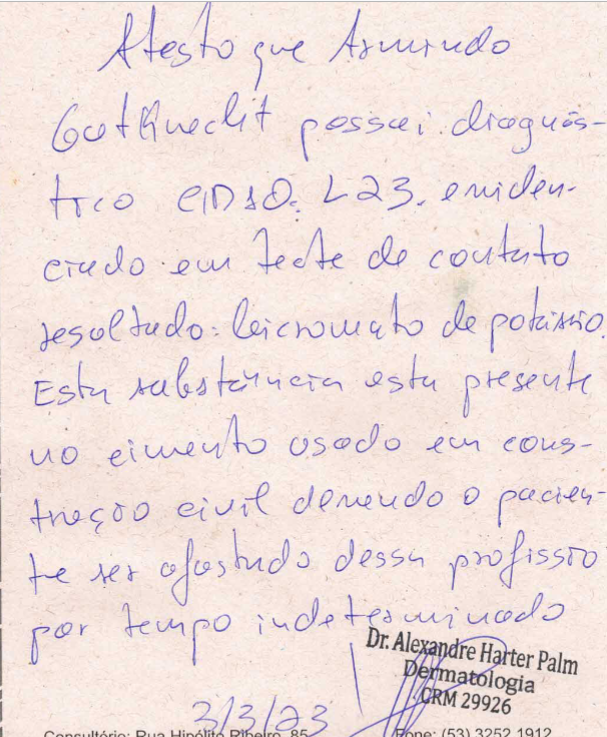 Atesto que Armindo
Gotknecht possui diagnós-
tico CID10: L23. eviden-
ciado em teste de contato
resultado: bicromato de potássio.
Esta substância esta presente
no cimento usado em cons-
trução civil devendo o pacien-
te ser afastado dessa profissão
por tempo indeterminado
Dr. Alexandre Harter Palm
Dermatologia
CRM 29926
3/3/23
Consultório: Rua Hipólito Ribeiro, 85
Fone: (53) 3252 1912